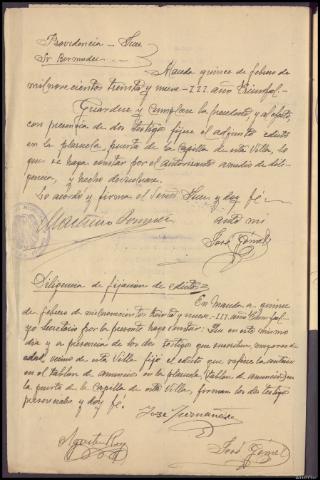 Providencia - Juez
Sr Bermudez
Maceda quince de febrero de
mil novecientos treinta y nueve - III año Triunfal -
Guardese y cumplase lo precedente, y al efecto
con presencia de dos testigos fijese el adjunto edicto
en la plazuela, puerta de la Capilla de esta Villa, lo
que se haga constar por el autorizante a medio de dili-
gencia, y hecho devuelvase.
Lo acordó y firma el Señor Juez y doy fé
ante mi
José Gómez
Diligencia de fijación de edicto
En Maceda a quince
de febrero de mil novecientos treinta y nueve - III año Triunfal,
yo Secretario por la presente hago constar: Que en este mismo
dia y a presencia de los dos testigos que suscriben mayores de
edad, vecinos de esta Villa fijé el edicto que refiere la anterior
en el tablon de anuncios en la plazuela, tablon de anuncios en
la puerta de la Capilla de esta Villa, firman los dos testigos
presenciales y doy fé.
José Fernández
José Gómez